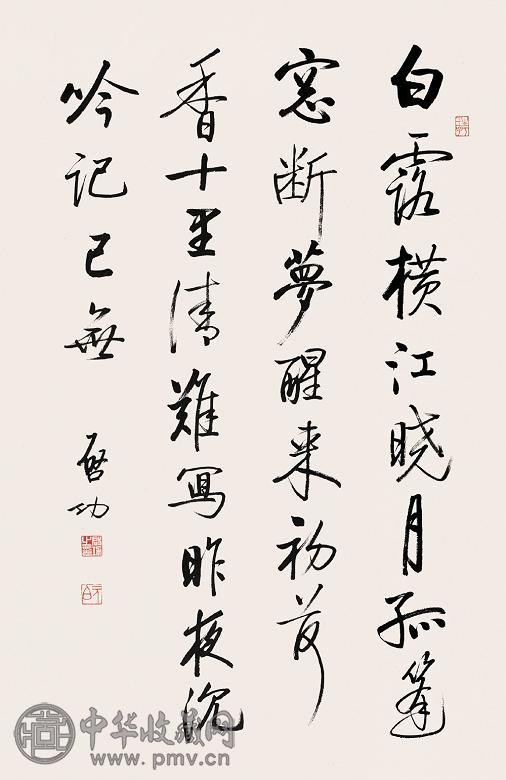 白露横江晓月孤篷
窓断夢醒来初荷
香十里清難寫昨夜沉
吟記已無
啓功
中华收藏网
www.pmv.cn